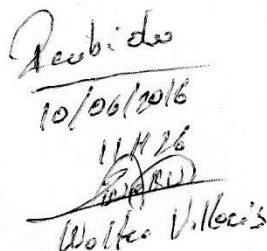 Recibido
10/06/2016
11H26
Walter Villacis